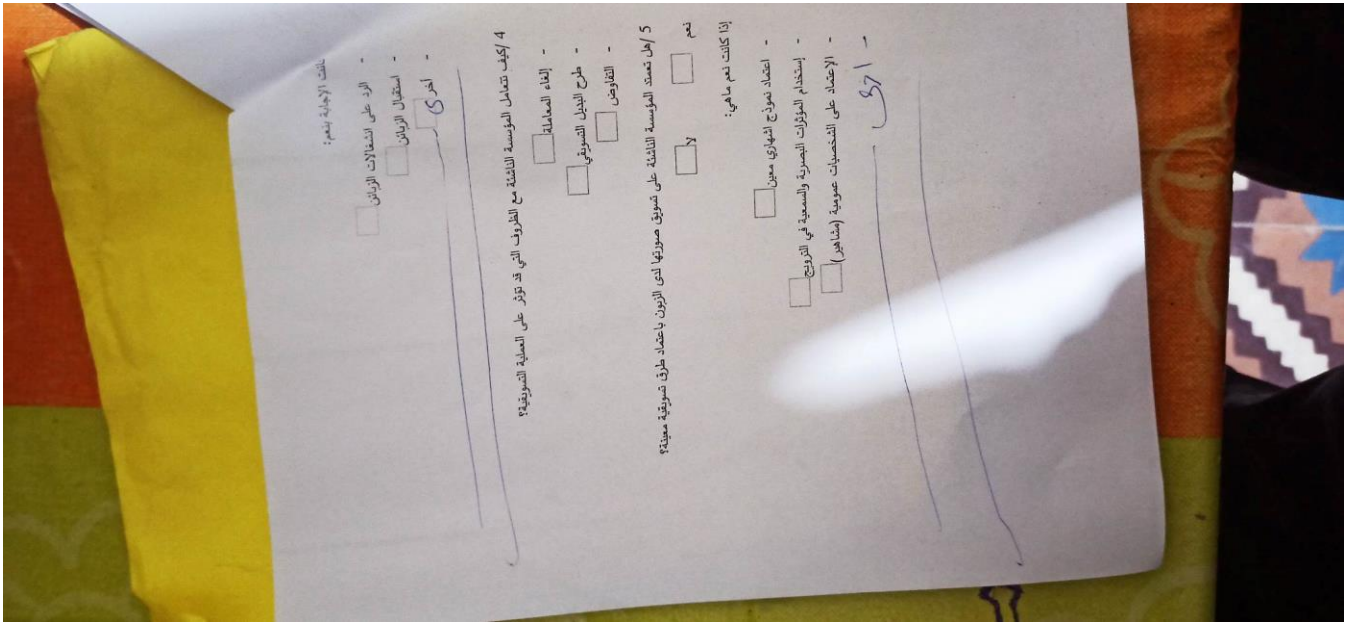 كانت الإجابة بنعم:
- الرد على انشغالات الزبائن
- استقبال الزبائن
- اخرى
4 /كيف تتعامل المؤسسة الناشئة مع الظروف التي قد تؤثر على العملية التسويقية؟
- إلغاء المعاملة
- طرح البديل التسويقي
- التفاوض
5 /هل تعتمد المؤسسة الناشئة على تسويق صورتها لدى الزبون باعتماد طرق تسويقية معينة؟
نعم لا
إذا كانت نعم ماهي:
- اعتماد نموذج اشهاري معين
- إستخدام المؤثرات البصرية والسمعية في الترويج
- الاعتماد على الشخصيات عمومية (مشاهير)
- اخرى